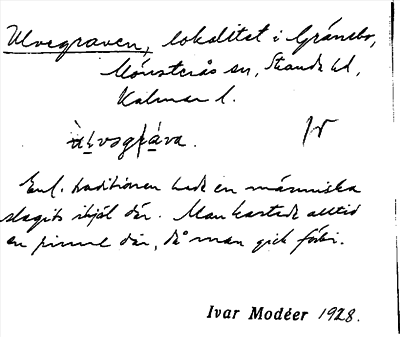 Ulvegraven, lokalitet i Gränsbo,
Mönsterås sn, Stranda hd,
Kalmar l.
ùlvsgráva.
Enl. traditionen hade en människa
slagits ihjäl där. Man kastade alltid
en pinne där, då man gick förbi.
Ivar Modéer 1928.